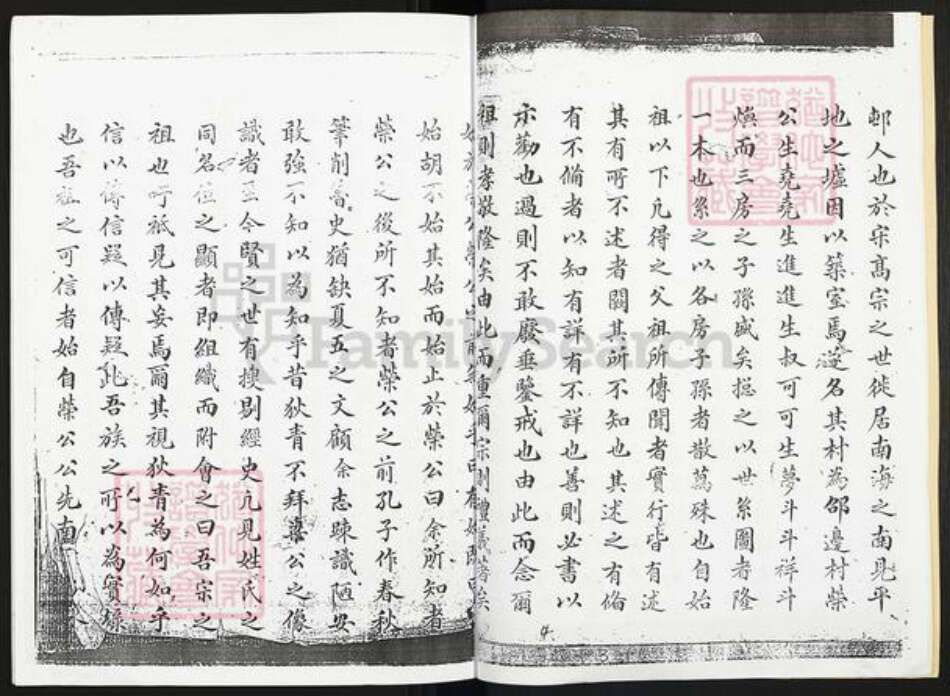 邨人也於宋高宗之世徙居南海之南見平
地之墟因以築室焉遂名其村為邵邊村榮
公生堯堯生進進生叔可可生夢斗斗祥斗
煥而三房之子孫盛矣揔之以世系圖者隆
一本也系之以各房子孫者散萬殊也自始
祖以下凡得之父祖所傳聞者實行皆有述
其有所不述者闕其所不知也其述之有偹
有不偹者以知有詳有不詳也善則必書以
示勸也過則不敢廢垂鑒戒也由此而念爾
祖則孝敬隆矣由此而重爾宗則禮義著矣
始胡不始其始而始止於榮公曰余所知者
榮公之後所不知者榮公之前孔子作春秋
筆削魯史猶缺夏五之文顧余志踈識陋安
敢強不知以為知乎昔狄青不拜梁公之像
識者至今賢之世有搜剔經史凢見姓氏之
同名位之顯者即組織而附會之曰吾宗之
祖也吁祗見其妄焉爾其視狄青為何如乎
信以傳信疑以傳疑此吾族之所以為實錄
也吾祖之可信者始自榮公公先南
FamilySearch
4